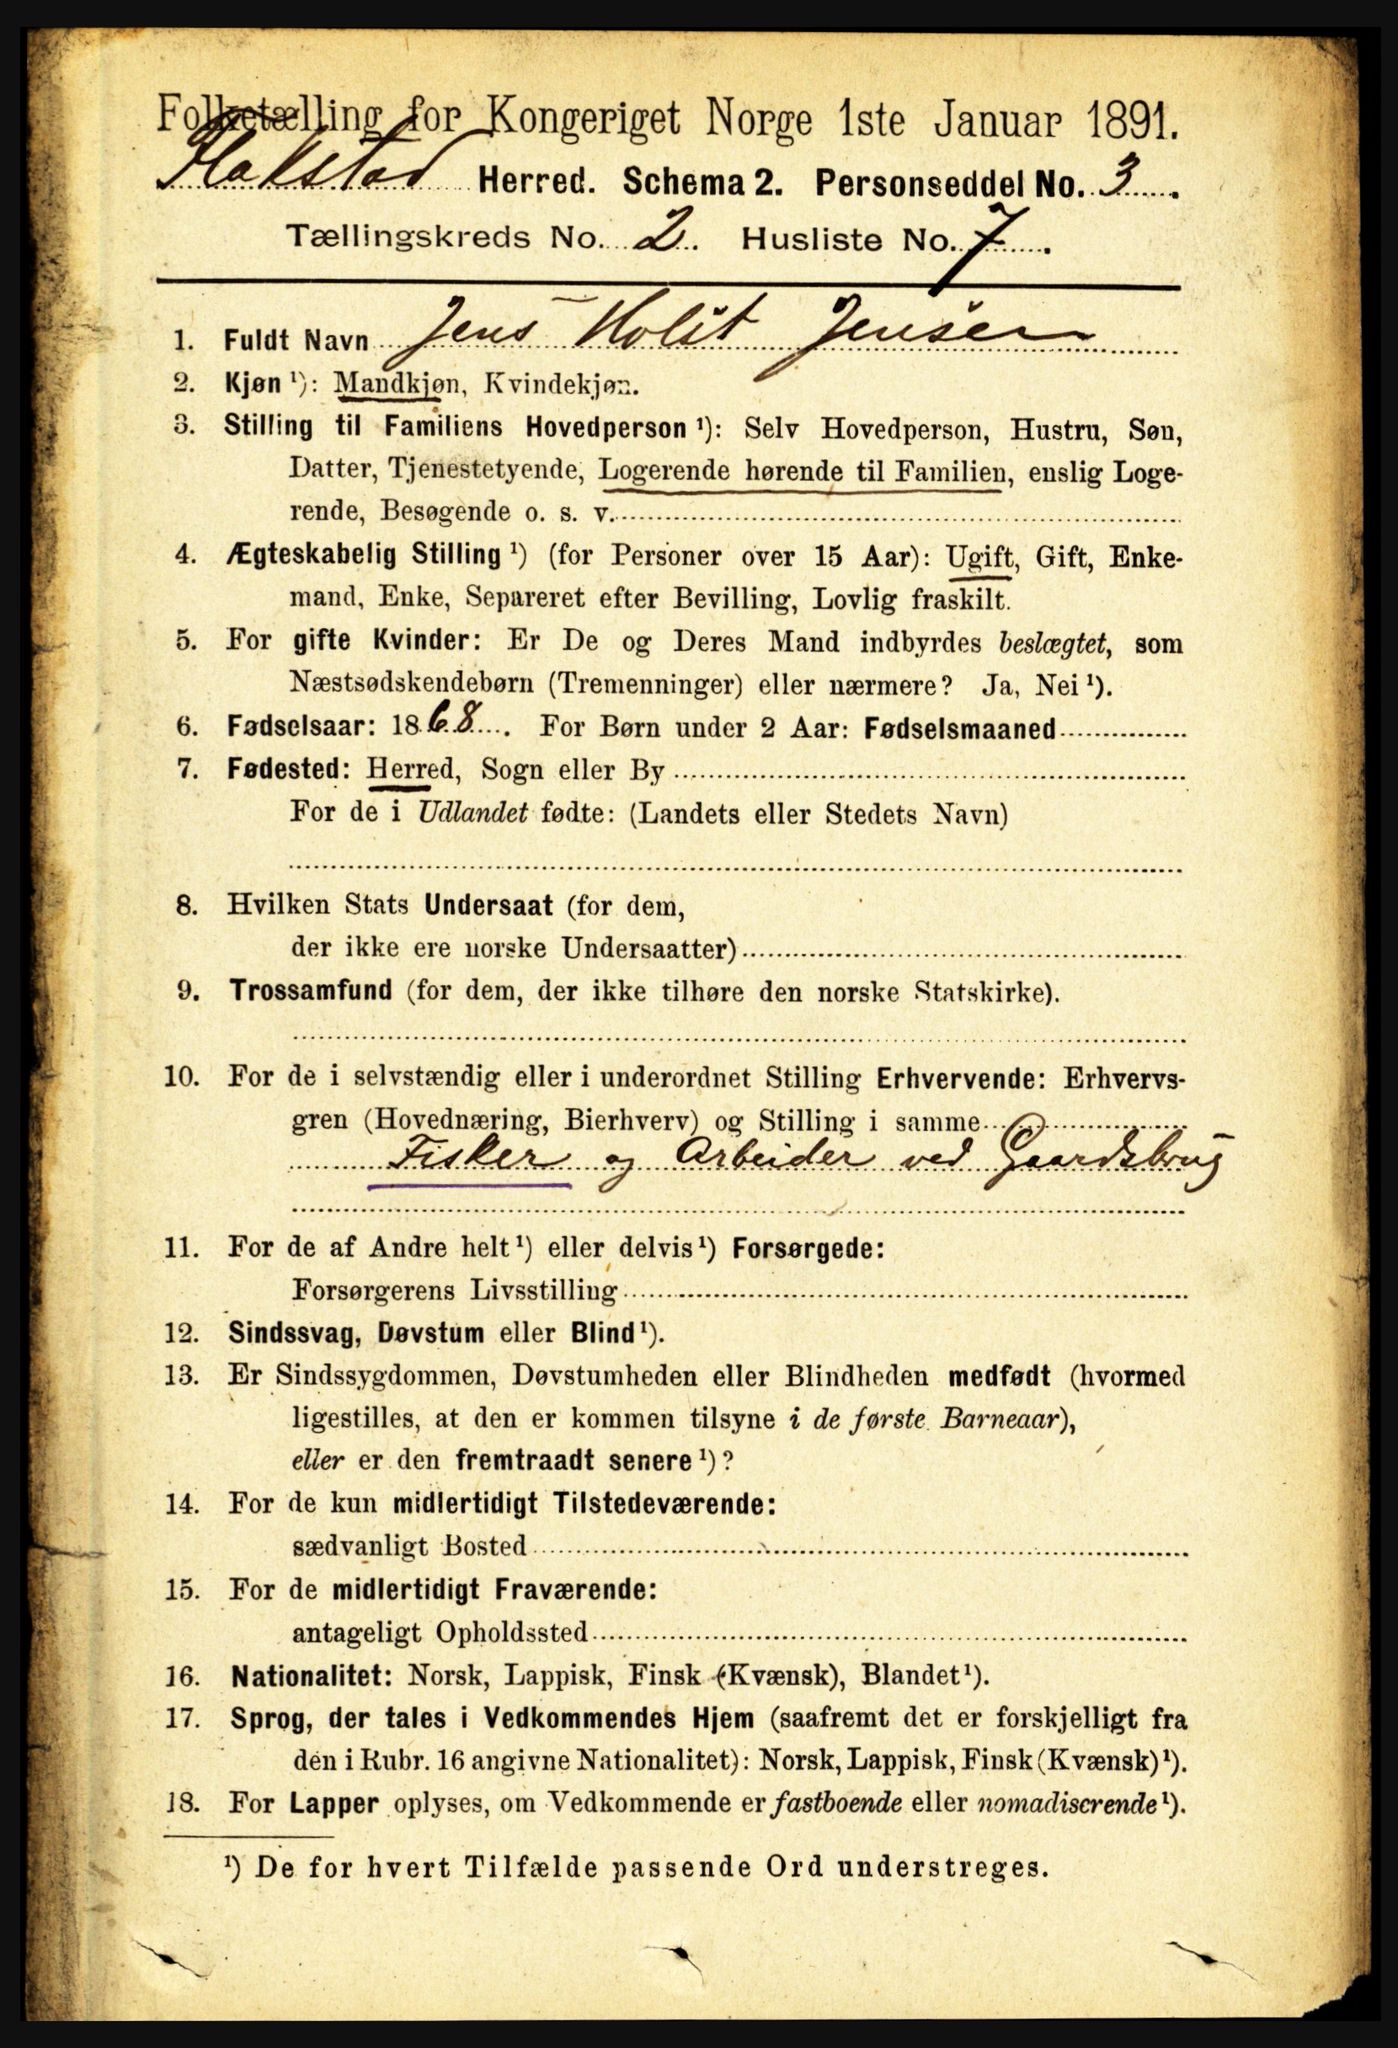 Folketælling for Kongeriget Norge 1ste Januar 1891.
Flakstad Herred. Schema 2. Personseddel No. 3.
Tællingskreds No. 2. Husliste No. 7.
1. Fuldt Navn Jens Holst Jensen
2. Kjøn ¹): Mandkjøn, Kvindekjøn.
3. Stilling til Familiens Hovedperson ¹): Selv Hovedperson, Hustru, Søn,
Datter, Tjenestetyende, Logerende hørende til Familien, enslig Loge-
rende, Besøgende o. s. v.
4. Ægteskabelig Stilling ¹) (for Personer over 15 Aar): Ugift, Gift, Enke-
mand, Enke, Separeret efter Bevilling, Lovlig fraskilt.
5. For gifte Kvinder: Er De og Deres Mand indbyrdes beslægtet, som
Næstsødskendebørn (Tremenninger) eller nærmere? Ja, Nei ¹).
6. Fødselsaar: 1868. For Børn under 2 Aar: Fødselsmaaned
7. Fødested: Herred, Sogn eller By
For de i Udlandet fødte: (Landets eller Stedets Navn)
8. Hvilken Stats Undersaat (for dem,
der ikke ere norske Undersaatter)
9. Trossamfund (for dem, der ikke tilhøre den norske Statskirke).
10. For de i selvstændig eller i underordnet Stilling Erhvervende: Erhvervs-
gren (Hovednæring, Bierhverv) og Stilling i samme
Fisker og Arbeider ved Gaardsbrug
11. For de af Andre helt ¹) eller delvis ¹) Forsørgede:
Forsørgerens Livsstilling
12. Sindssvag, Døvstum eller Blind ¹).
13. Er Sindssygdommen, Døvstumheden eller Blindheden medfødt (hvormed
ligestilles, at den er kommen tilsyne i de første Barneaar),
eller er den fremtraadt senere ¹)?
14. For de kun midlertidigt Tilstedeværende:
sædvanligt Bosted
15. For de midlertidigt Fraværende:
antageligt Opholdssted
16. Nationalitet: Norsk, Lappisk, Finsk (Kvænsk), Blandet ¹).
17. Sprog, der tales i Vedkommendes Hjem (saafremt det er forskjelligt fra
den i Rubr. 16 angivne Nationalitet): Norsk, Lappisk, Finsk (Kvænsk) ¹).
18. For Lapper oplyses, om Vedkommende er fastboende eller nomadiserende ¹).
¹) De for hvert Tilfælde passende Ord understreges.